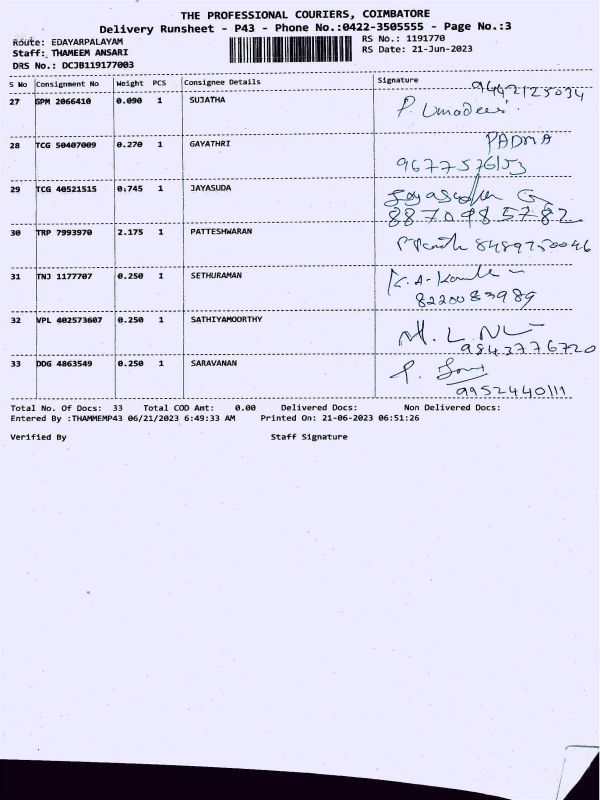 THE PROFESSIONAL COURIERS, COIMBATORE
Delivery Runsheet - P43 - Phone No.:0422-3505555 - Page No.:3
Route: EDAYARPALAYAM RS No.: 1191770
Staff: THAMEEM ANSARI RS Date: 21-Jun-2023
DRS No.: DCJB119177003
S No Consignment No Weight PCS Consignee Details Signature
9442125034
27 GPM 2066410 0.090 1 SUJATHA P. Umadevi
28 TCG 50407009 0.270 1 GAYATHRI PADMA
9677576153
29 TCG 40521515 0.745 1 JAYASUDA Jayasudha G
8870985782
30 TRP 7993970 2.175 1 PATTESHWARAN 8489750046
31 TNJ 1177707 0.250 1 SETHURAMAN K.A.
8220083989
32 VPL 402573607 0.250 1 SATHIYAMOORTHY M. L.
9843776720
33 DDG 4863549 0.250 1 SARAVANAN
9952440111
Total No. Of Docs: 33 Total COD Amt: 0.00 Delivered Docs: Non Delivered Docs:
Entered By :THAMMEMP43 06/21/2023 6:49:33 AM Printed On: 21-06-2023 06:51:26
Verified By Staff Signature